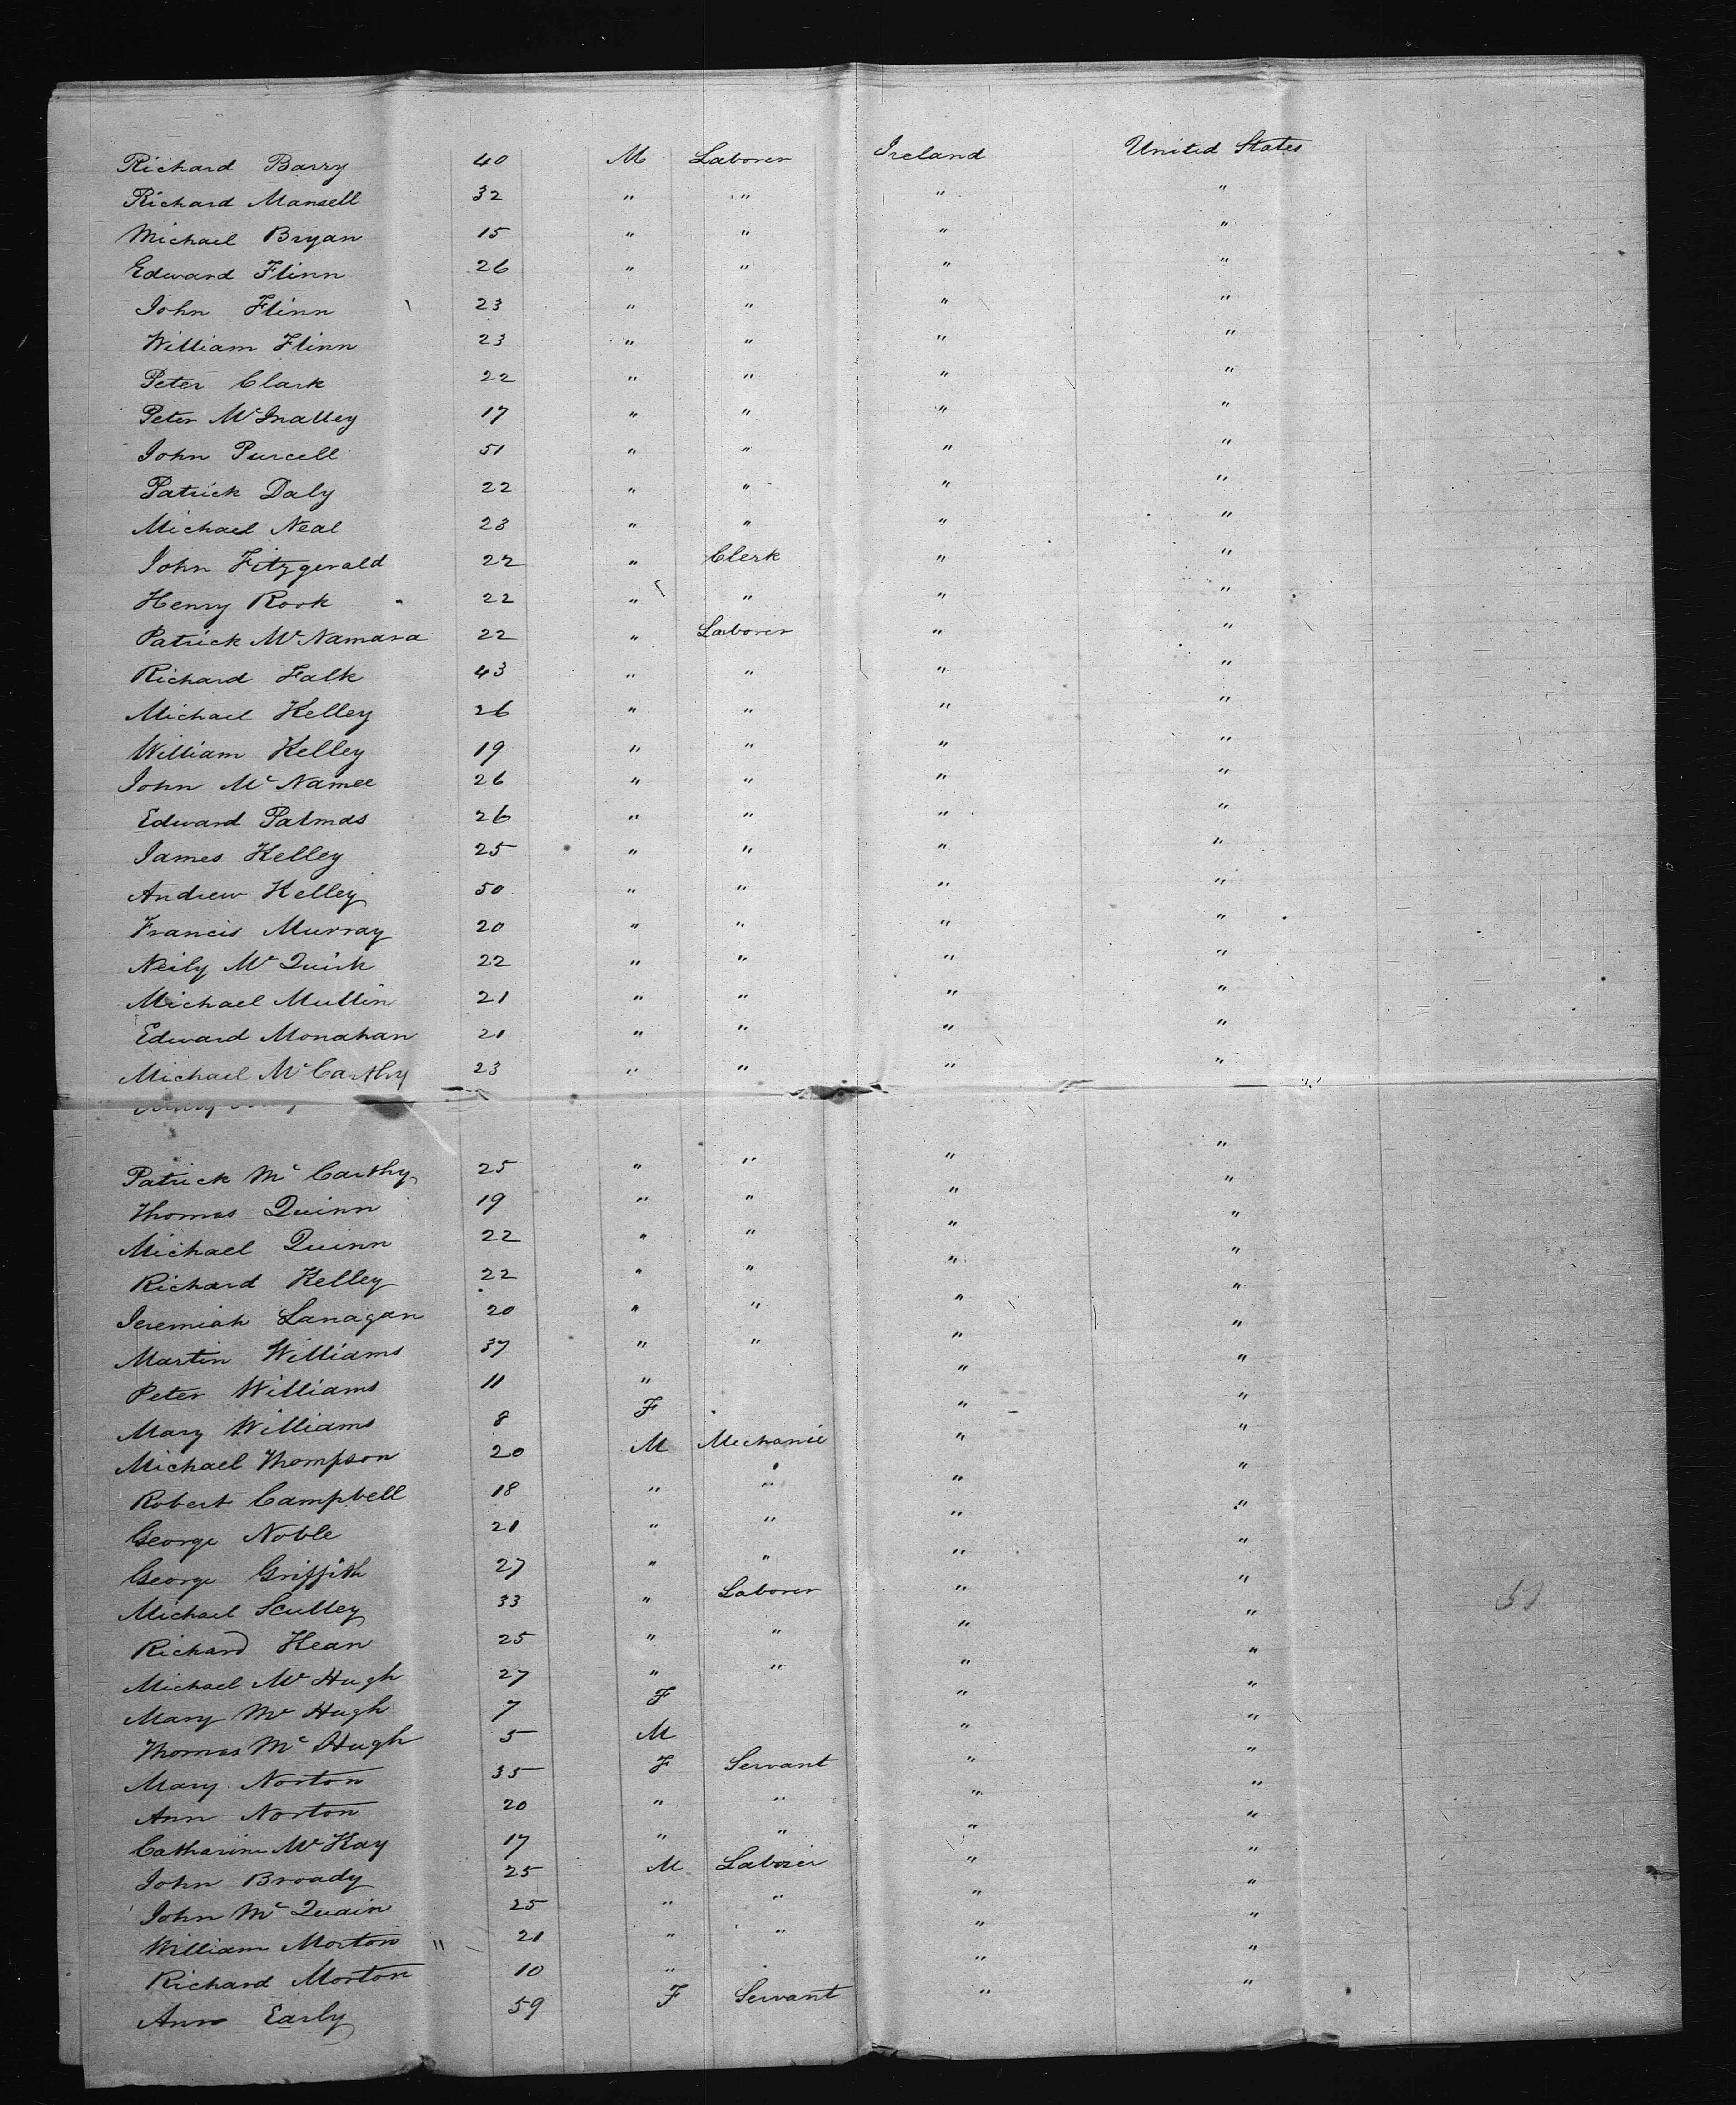 Richard Barry 40 M Laborer Ireland United States
Richard Mansell 32 " " " "
Michael Bryan 15 " " " "
Edward Flinn 26 " " " "
John Flinn 23 " " " "
William Flinn 23 " " " "
Peter Clark 22 " " " "
Peter 17 " " " "
John Purcell 51 " " " "
Patrick Daly 22 " " " "
Michael Neal 23 " " " "
John Fitzgerald 22 " Clerk " "
Henry Rook 22 " " " "
Patrick McNamara 22 " Laborer " "
Richard Falk 43 " " " "
Michael Kelley 26 " " " "
William Kelley 19 " " " "
John McNamee 26 " " " "
Edward Palmas 26 " " " "
James Kelley 25 " " " "
Andrew Kelley 50 " " " "
Francis Murray 20 " " " "
Neily McQuirk 22 " " " "
Michael Mullin 21 " " " "
Edward Monahan 21 " " " "
Michael McCarthy 23 " " " "
Patrick McCarthy 25 " " " "
Thomas Quinn 19 " " " "
Michael Quinn 22 " " " "
Richard Kelley 22 " " " "
Jeremiah Lanagan 20 " " " "
Martin Williams 37 " " " "
Peter Williams 11 " " "
Mary Williams 8 F " "
Michael Thompson 20 M Mechanic " "
Robert Campbell 18 " " " "
George Noble 21 " " " "
George Griffith 27 " " " "
Michael Sculley 33 " Laborer " "
Richard Kean 25 " " " "
Michael McHugh 27 " " " "
Mary McHugh 7 F " "
Thomas McHugh 5 M " "
Mary Norton 35 F Servant " "
Ann Norton 20 " " " "
Catharine McKay 17 " " " "
John Broady 25 M Laborer " "
John McQuain 25 " " " "
William Morton " 21 " " " "
Richard Morton 10 " " "
Ann Early 59 F Servant " "